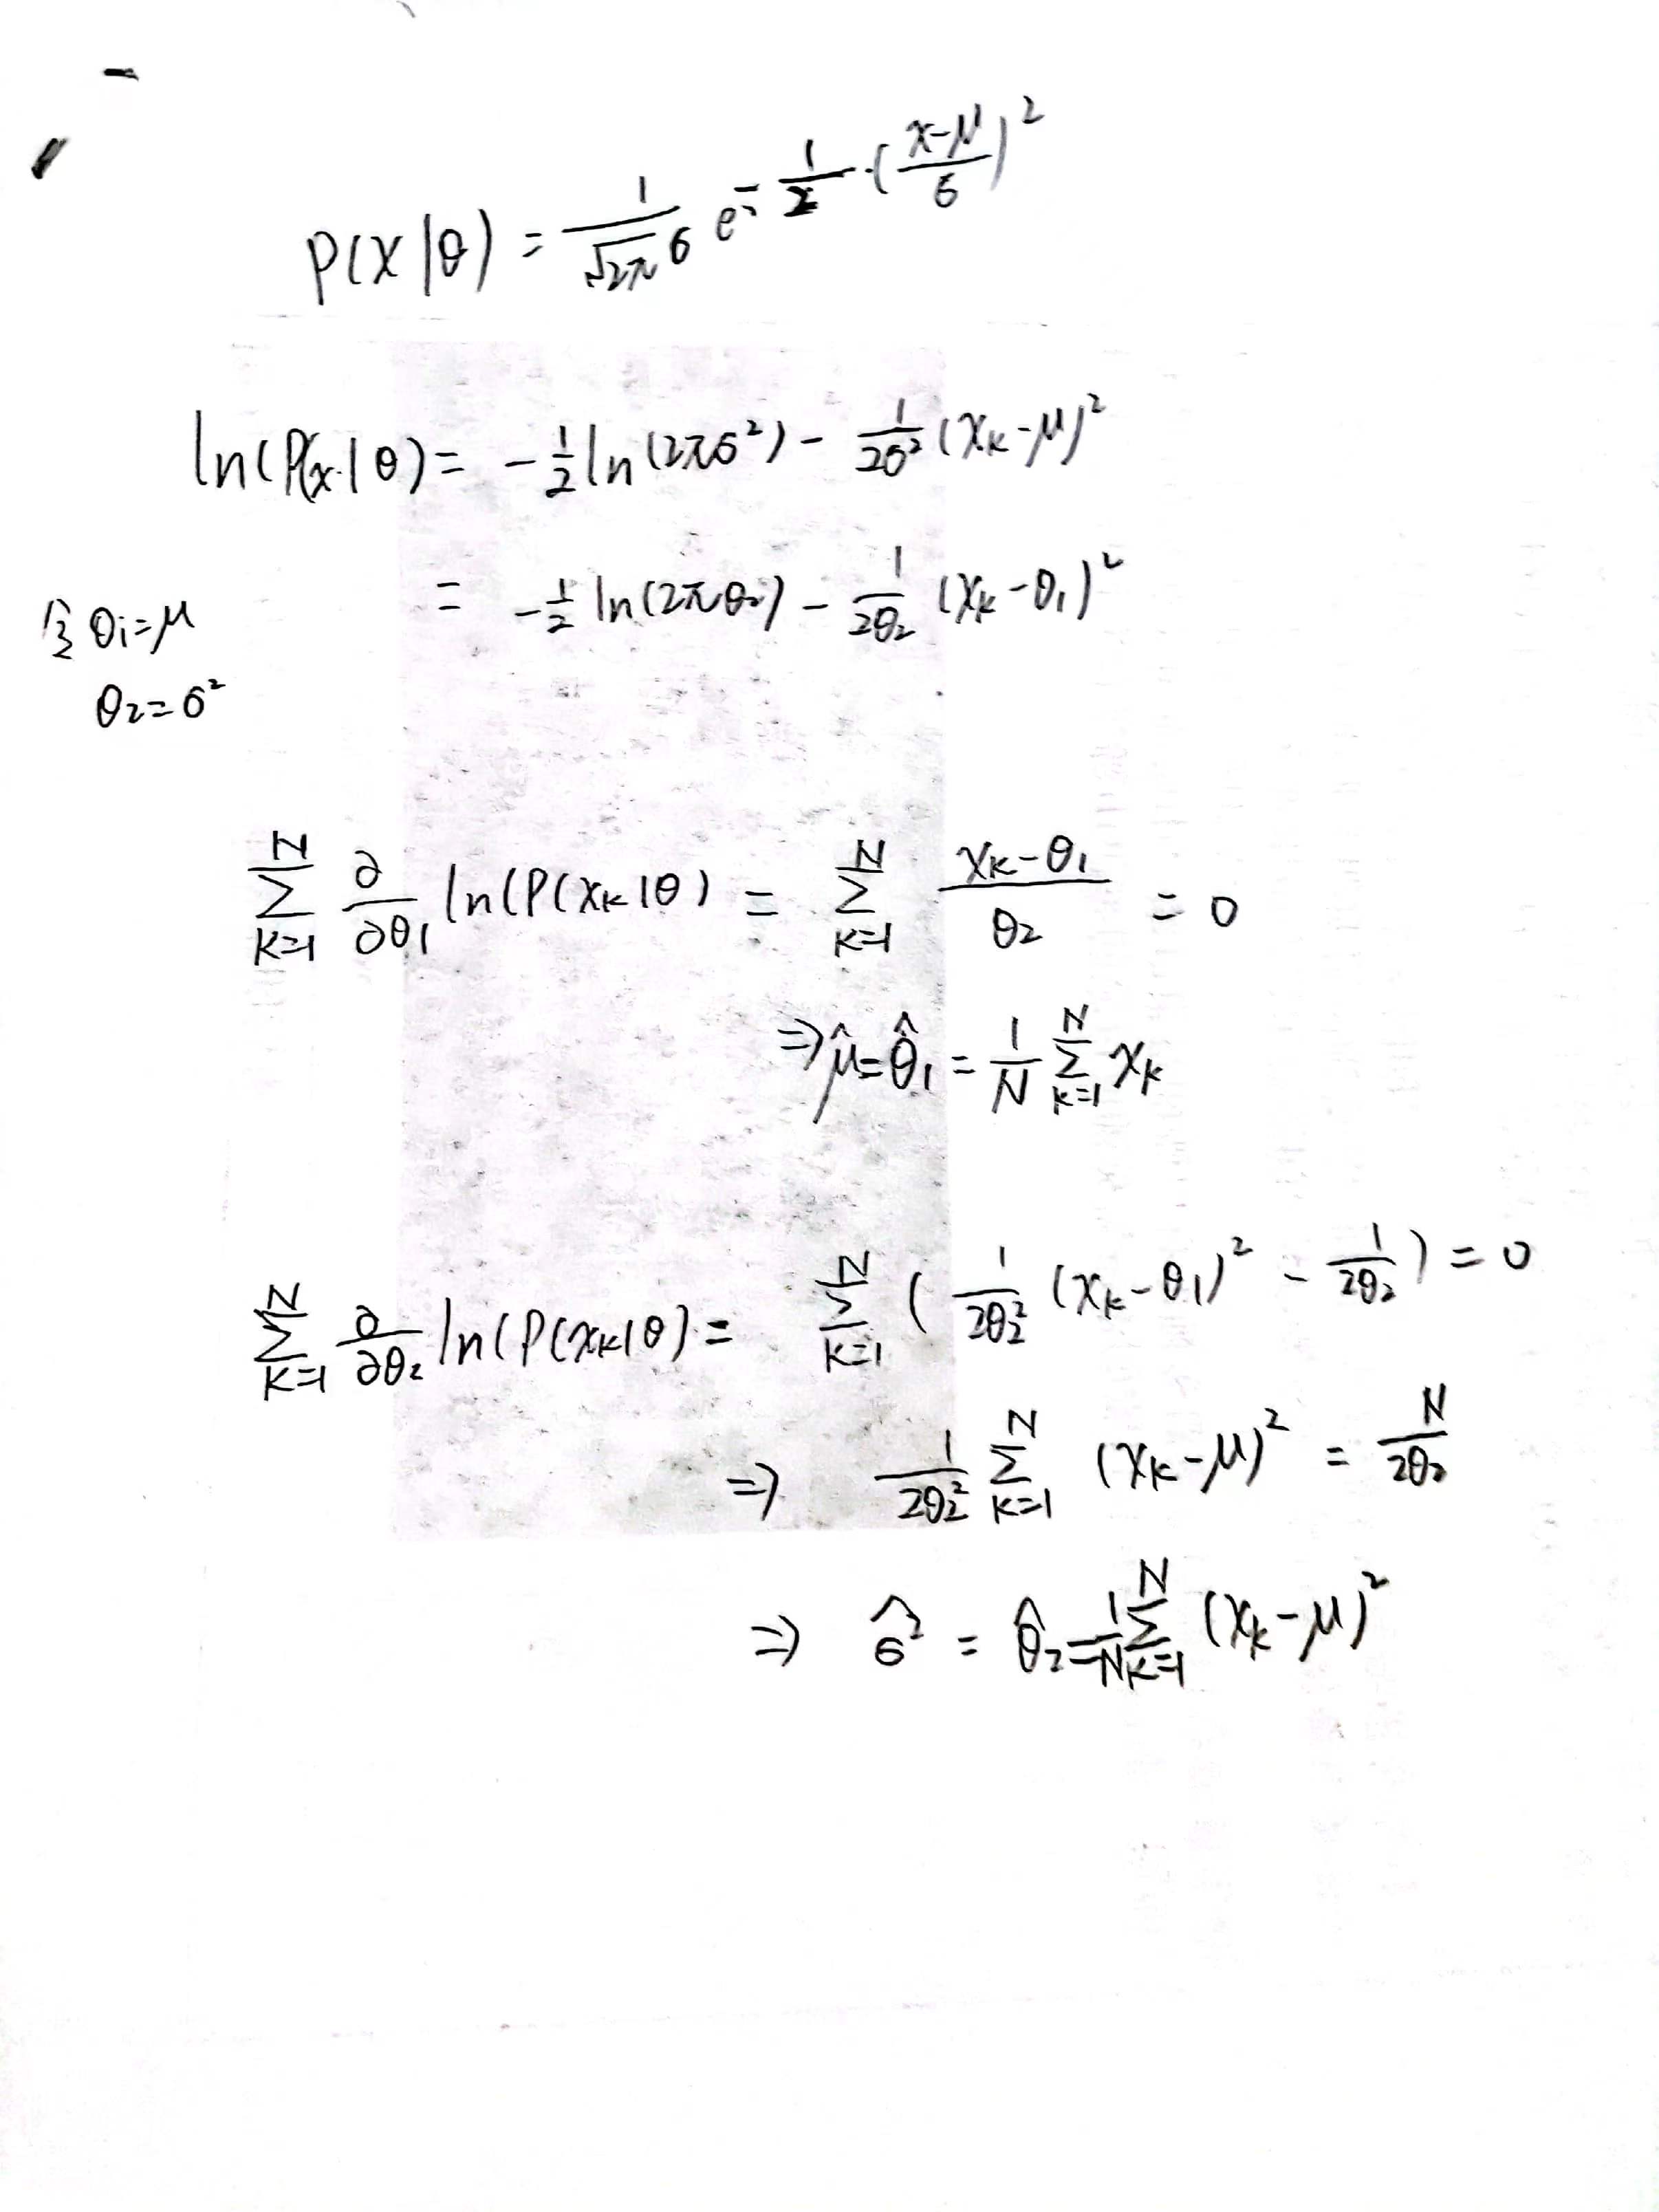 P(x|θ) = \frac{1}{\sqrt{2π}σ} e^{-\frac{1}{2}·(\frac{x-μ}{σ})^2}
ln(P(x|θ) = -\frac{1}{2}ln(2πσ^2) - \frac{1}{2σ^2}(x_k-μ)^2
= -\frac{1}{2}ln(2πθ_2) - \frac{1}{2θ_2}(x_k-θ_1)^2
令 θ_1=μ
θ_2=σ^2
\sum_{k=1}^{N} \frac{∂}{∂θ_1} ln(P(x_k|θ) = \sum_{k=1}^{N} \frac{x_k-θ_1}{θ_2} = 0
⇒ \hat{μ}=\hat{θ}_1 = \frac{1}{N} \sum_{k=1}^{N} x_k
\sum_{k=1}^{N} \frac{∂}{∂θ_2} ln(P(x_k|θ) = \sum_{k=1}^{N} (\frac{1}{2θ_2^2}(x_k-θ_1)^2 - \frac{1}{2θ_2}) = 0
⇒ \frac{1}{2θ_2^2} \sum_{k=1}^{N} (x_k-μ)^2 = \frac{N}{2θ_2}
⇒ \hat{σ^2} = \hat{θ}_2 = \frac{1}{N} \sum_{k=1}^{N} (x_k-μ)^2